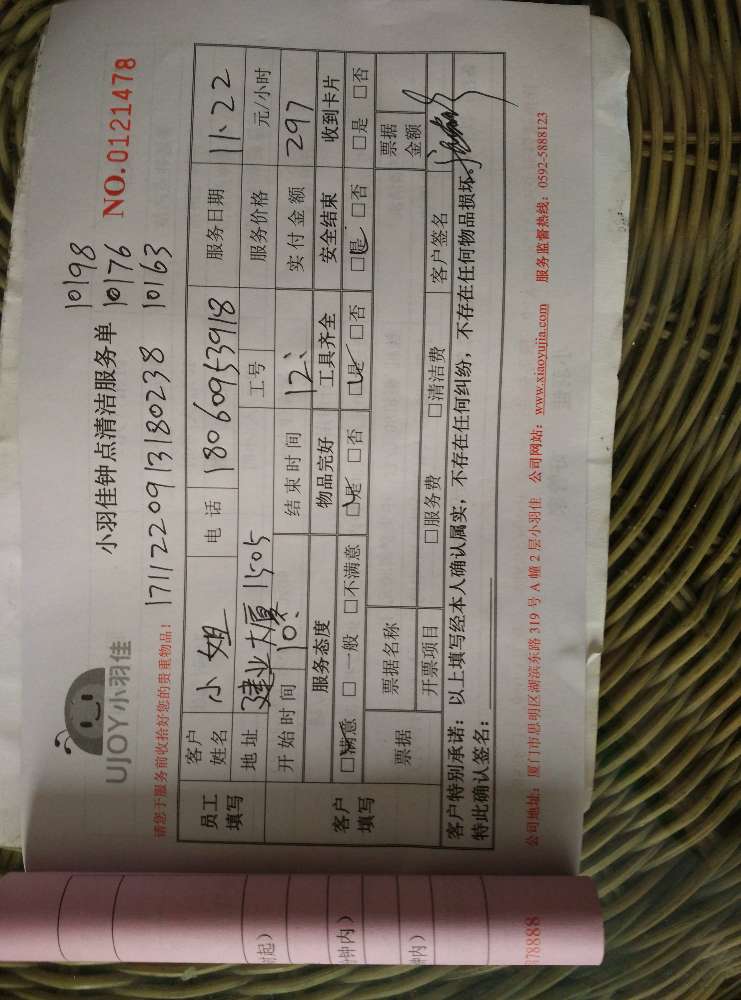 UJOY小羽佳
小羽佳钟点清洁服务单
10198
10176
10163
NO.0121478
171122091318 0238
请您于服务前收拾好您的贵重物品!
员工填写 客户姓名 小姐 电话 18060953918 服务日期 11.22
地址 建业大厦1505 工号 服务价格 元/小时
开始时间 10: 结束时间 12: 实付金额 297
客户填写 服务态度 物品完好 工具齐全 安全结束 收到卡片
□满意 □一般 □不满意 □是 □否 □是 □否 □是 □否 □是 □否
票据 票据名称 票据金额
开票项目 □服务费 □清洁费 客户签名
客户特别承诺:以上填写经本人确认属实,不存在任何纠纷,不存在任何物品损坏。
特此确认签名:
公司地址:厦门市思明区湖滨东路319号A幢2层小羽佳 公司网站:www.xiaoyujia.com 服务监督热线:0592-5888123
起)
钟内)
钟内)
378888